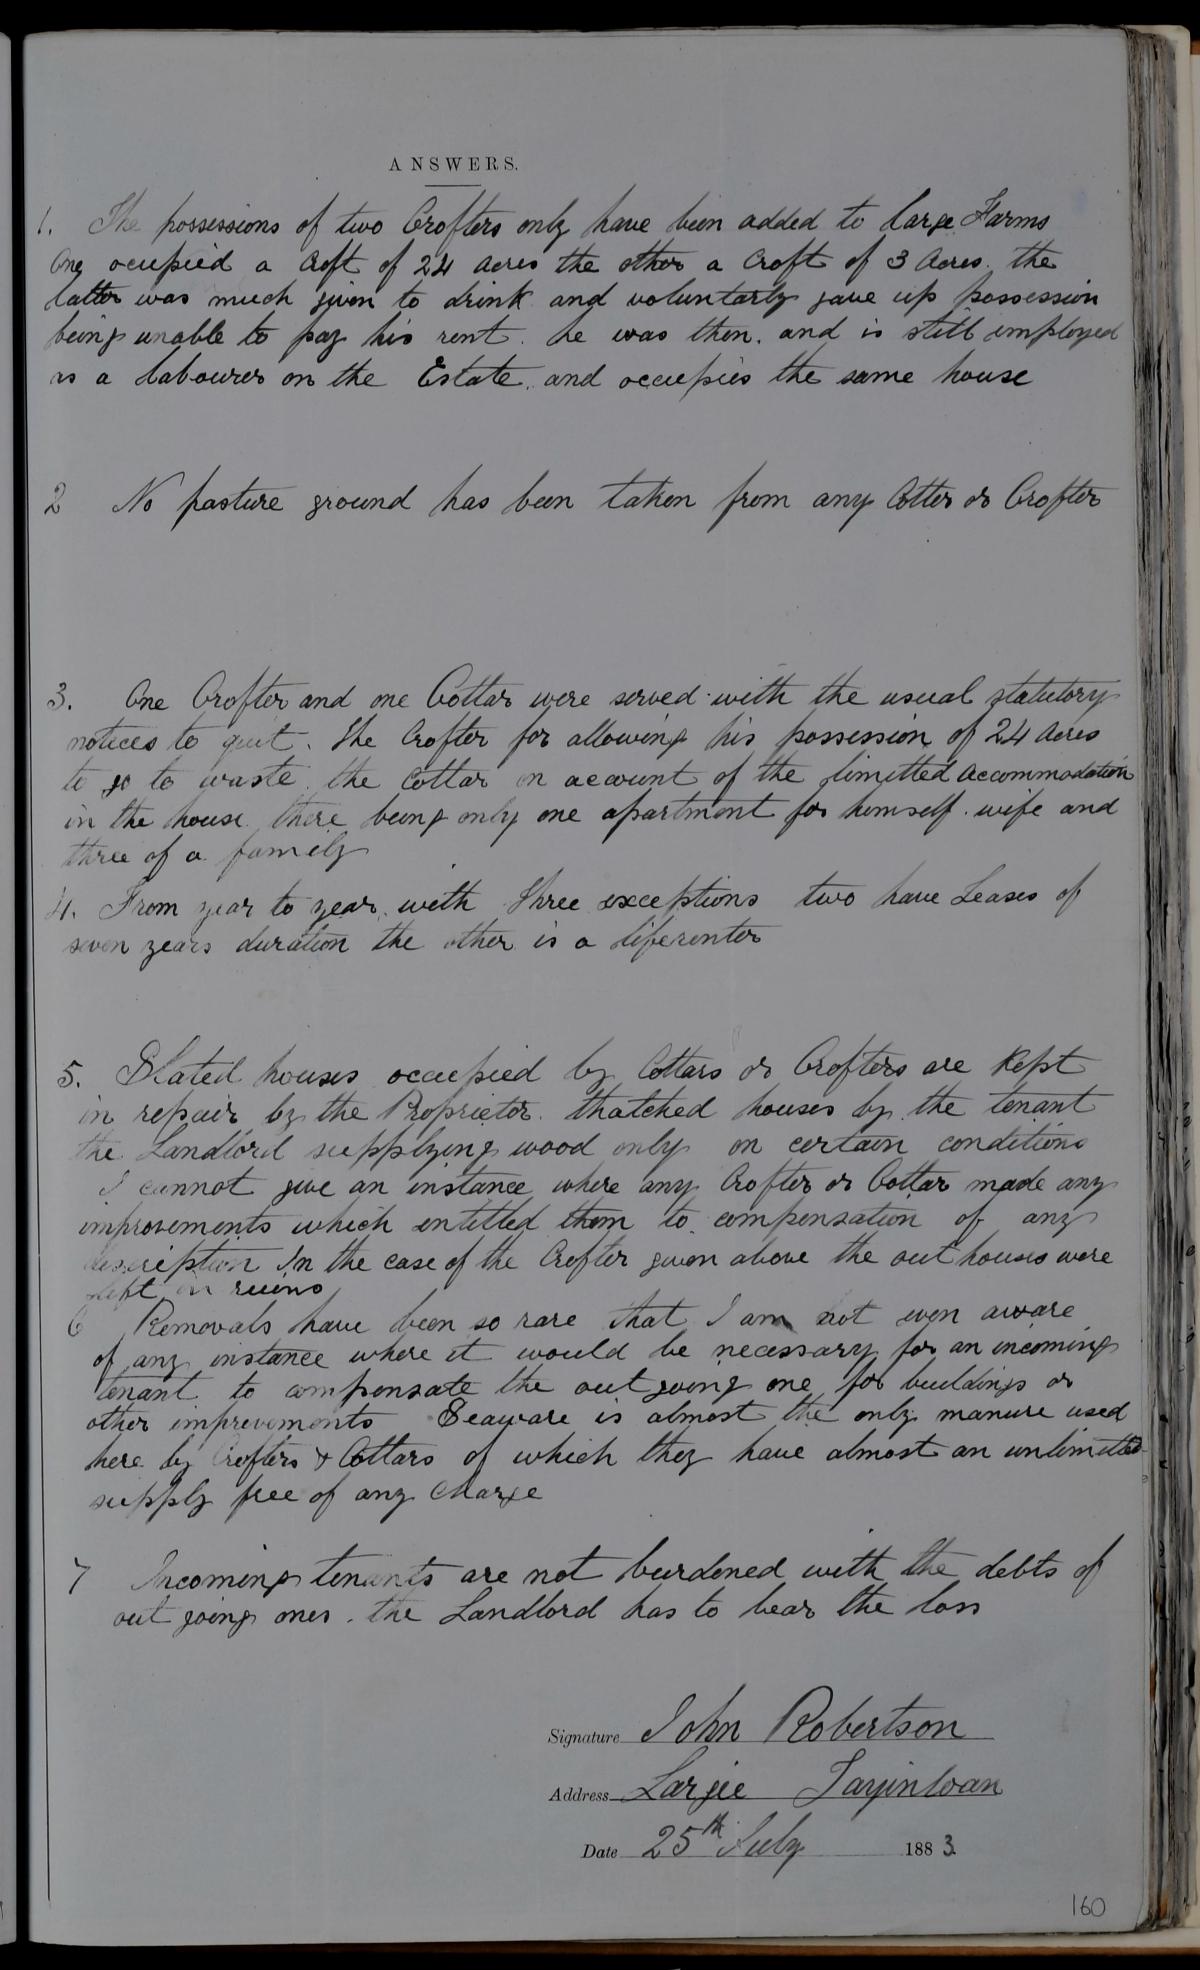 ANSWERS.
1. The possessions of two Crofters only have been added to large Farms
One ocupied a Croft of 24 acres the other a Croft of 3 Acres. the
latter was much given to drink and voluntarly gave up possession
being unable to pay his rent. he was then. and is still employed
as a labourer on the Estate. and occupies the same house
2 No pasture ground has been taken from any Cotter or Crofter
3. One Crofter and one Cottar were served with the usual statutory
notices to quit. The Crofter for allowing his possession of 24 Acres
to go to waste. the Cottar on account of the limitted accommodation
in the house there being only one apartment for himself. wife and
three of a family
4. From year to year. with three exceptions two have Leases of
seven years duration the other is a liferenter
5. Slated houses occupied by Cottars or Crofters are Kept
in repair by the Proprietor. thatched houses by the tenant
the Landlord supplying wood only on certain conditions
I cannot give an instance where any Crofter or Cottar made any
improvements which entitled them to compensation of any
description In the case of the Crofter given above the out houses were
left in ruins
6 Removals have been so rare that I am not even aware
of any instance where it would be necessary for an incoming
tenant to compensate the out going one for buildings or
other improvements Seaware is almost the only manure used
here by Crofters & Cottars of which they have almost an unlimitted
supply free of any Charge
7 Incoming tenants are not burdened with the debts of
out going ones. the Landlord has to bear the loss
Signature John Robertson
Address Largie Tayinloan
Date 25th July 1883.
160